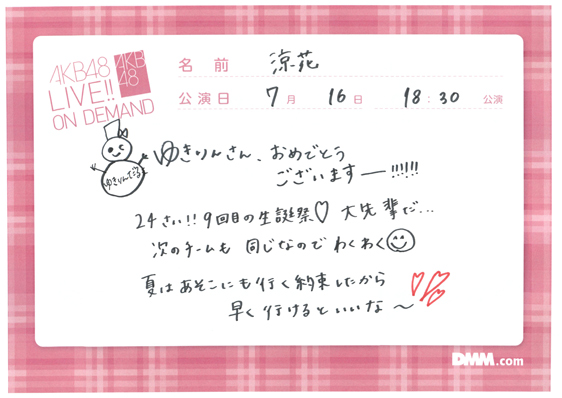 AKB48
LIVE!!
ON DEMAND
AKB
48
名前 涼花
公演日 7月 16日 18:30 公演
ゆきりんさん、おめでとう
ございますー!!!!!
ゆきりんてるる
24さい!! 9回目の生誕祭♡ 大先輩だ...
次のチームも 同じなので わくわく
夏はあそこにも行く約束したから
早く行けるといいな〜
DMM.com